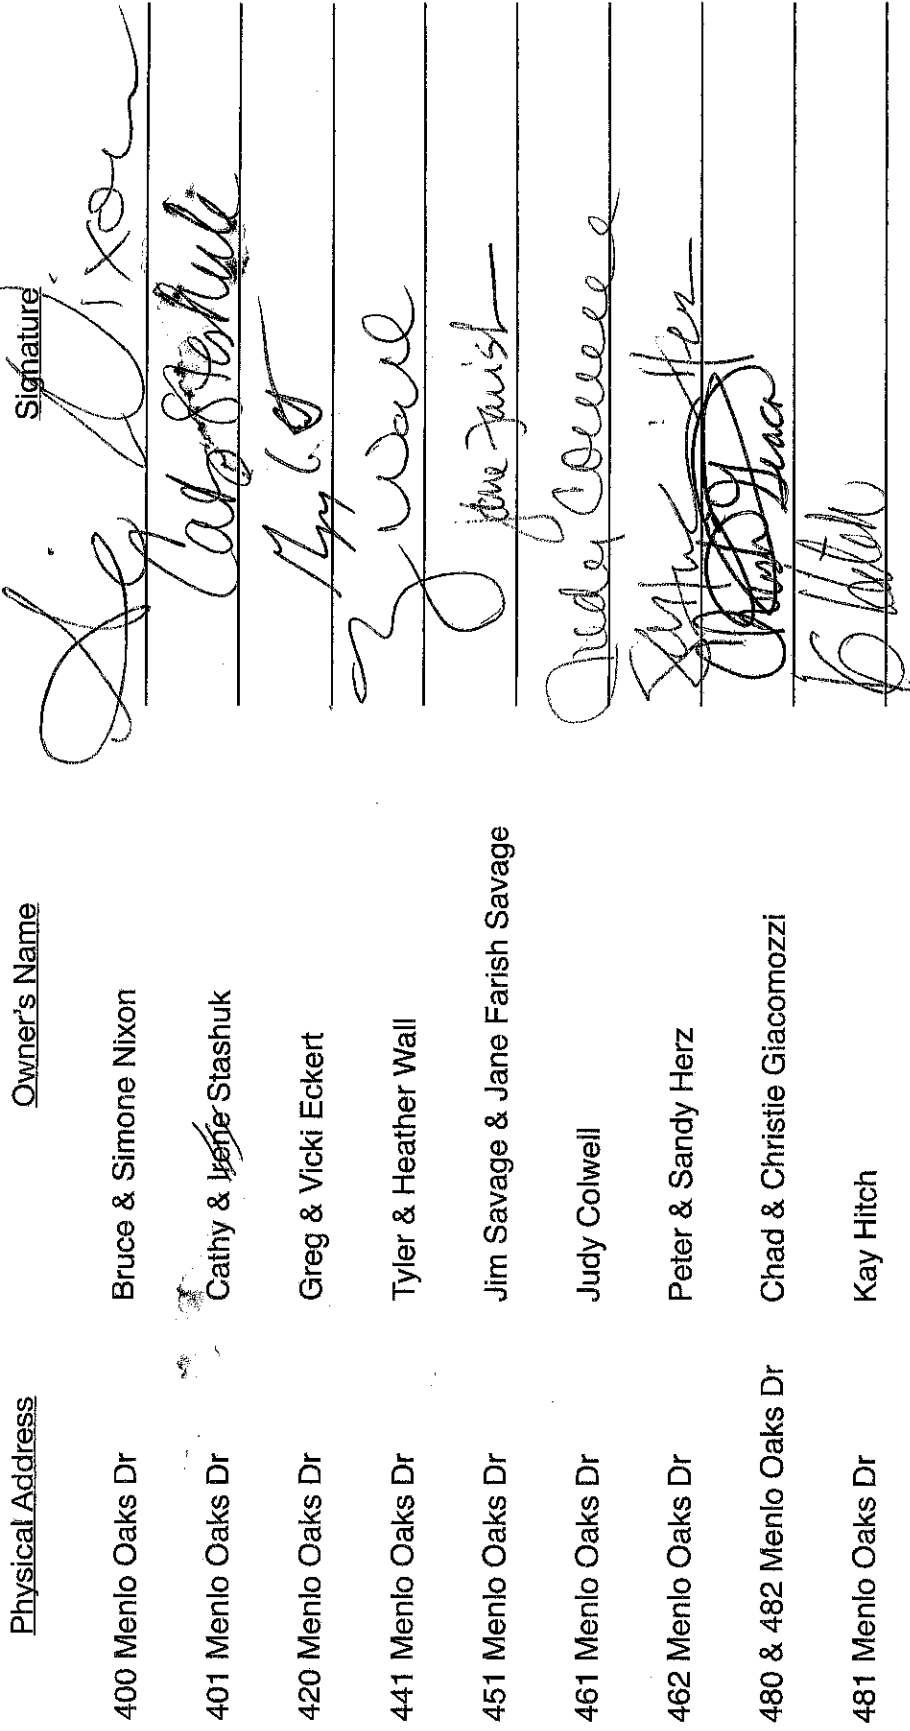 Physical Address Owner's Name Signature
400 Menlo Oaks Dr Bruce & Simone Nixon Nixon
401 Menlo Oaks Dr Cathy & Irene Stashuk Cathy Stashuk
420 Menlo Oaks Dr Greg & Vicki Eckert
441 Menlo Oaks Dr Tyler & Heather Wall Wall
451 Menlo Oaks Dr Jim Savage & Jane Farish Savage Jane Farish
461 Menlo Oaks Dr Judy Colwell Judy Colwell
462 Menlo Oaks Dr Peter & Sandy Herz Herz
480 & 482 Menlo Oaks Dr Chad & Christie Giacomozzi
481 Menlo Oaks Dr Kay Hitch K Hitch